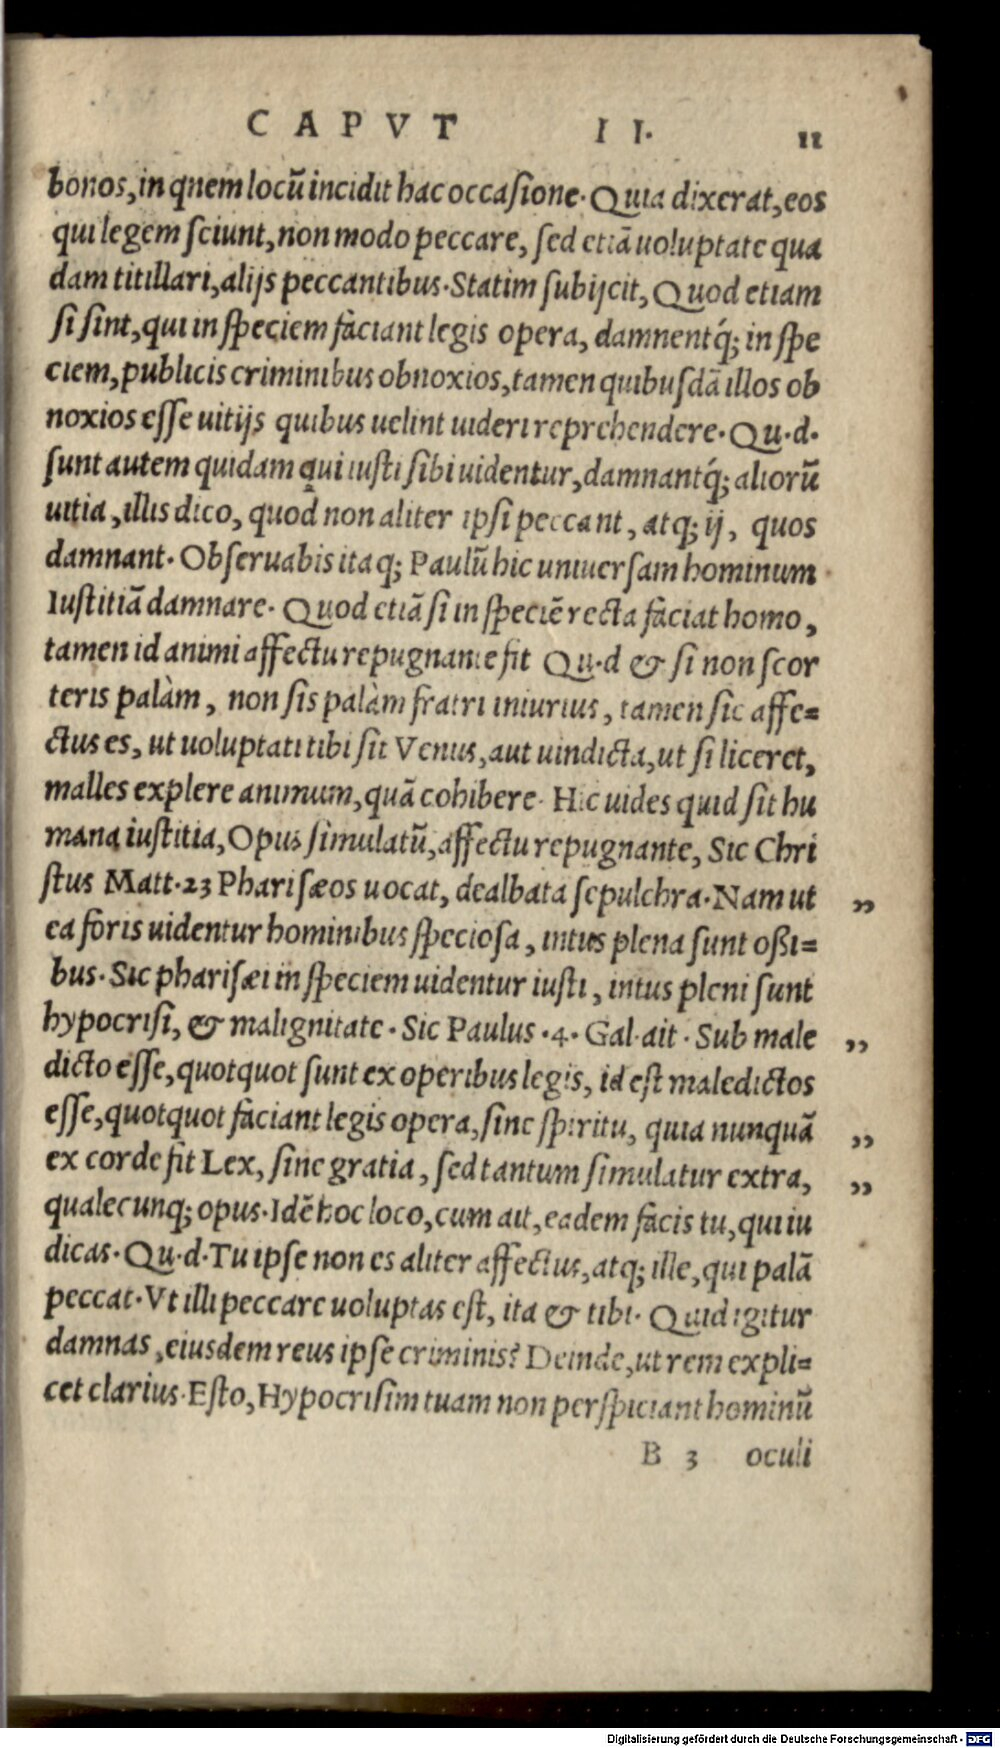 CAPVT II. 11
bonos, in quem locũ incidit hac occasione. Quia dixerat, eos
qui legem sciunt, non modo peccare, sed etiã uoluptate qua
dam titillari, alijs peccantibus. Statim subijcit, Quod etiam
si sint, qui in speciem faciant legis opera, damnentq́; in spe
ciem, publicis criminibus obnoxios, tamen quibusdã illos ob
noxios esse uitijs quibus uelint uideri reprehendere. Qu. d.
sunt autem quidam qui iusti sibi uidentur, damnantq́; aliorũ
uitia, illis dico, quod non aliter ipsi peccant, atq; ij, quos
damnant. Obseruabis itaq; Paulũ hic uniuersam hominum
Iustitiã damnare. Quod etiã si in speciẽ recta faciat homo,
tamen id animi affectu repugnante fit Qu. d & si non scor
teris palàm, non sis palàm fratri iniurius, tamen sic affe=
ctus es, ut uoluptati tibi sit Venus, aut uindicta, ut si liceret,
malles explere animum, quã cohibere. Hic uides quid sit hu
mana iustitia, Opus simulatũ, affectu repugnante, Sic Chri
stus Matt. 23 Pharisæos uocat, dealbata sepulchra. Nam ut „
ea foris uidentur hominibus speciosa, intus plena sunt oßi=
bus. Sic pharisæi in speciem uidentur iusti, intus pleni sunt
hypocrisi, & malignitate. Sic Paulus .4. Gal. ait. Sub male „
dicto esse, quotquot sunt ex operibus legis, id est maledictos
esse, quotquot faciant legis opera, sine spiritu, quia nunquã „
ex corde fit Lex, sine gratia, sed tantum simulatur extra, „
qualecunq; opus. Idẽ hoc loco, cum ait, eadem facis tu, qui iu
dicas. Qu. d. Tu ipse non es aliter affectus, atq; ille, qui palã
peccat. Vt illi peccare uoluptas est, ita & tibi. Quid igitur
damnas, eiusdem reus ipse criminis? Deinde, ut rem expli=
cet clarius. Esto, Hypocrisim tuam non perspiciant hominũ
B 3 oculi
Digitalisierung gefördert durch die Deutsche Forschungsgemeinschaft - DFG